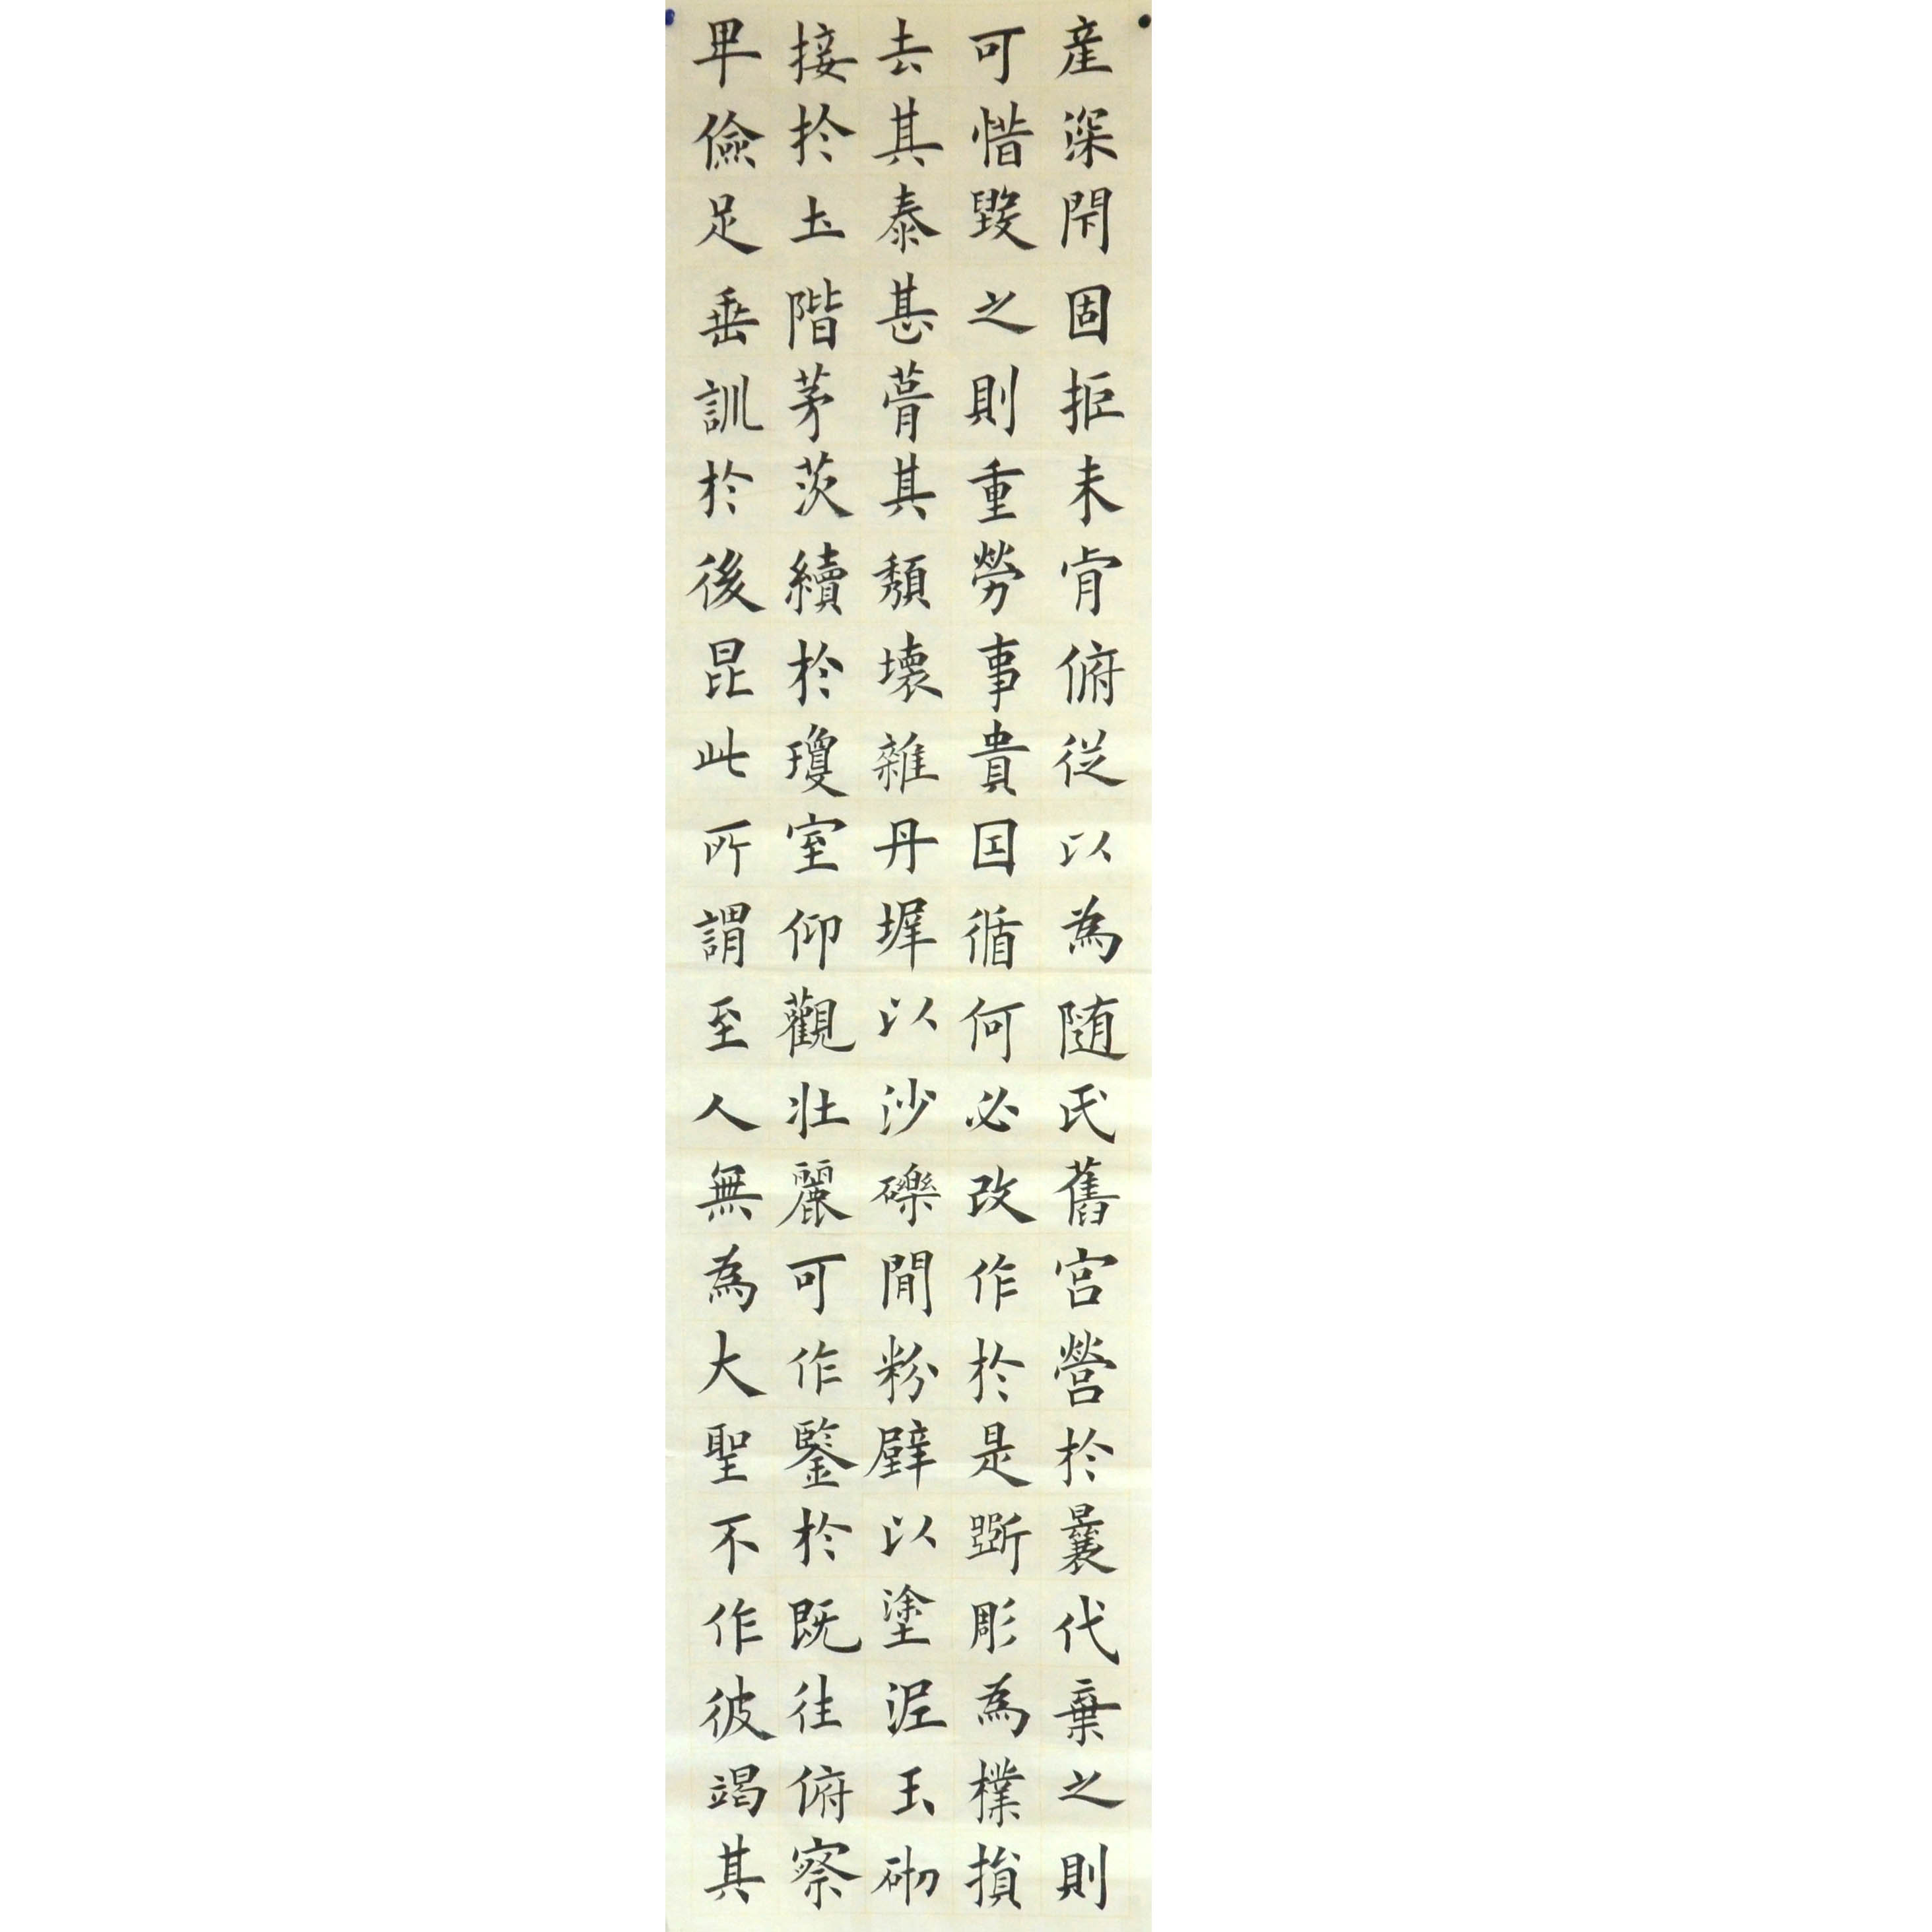 産深閇固拒未肯俯従以為随氏舊宮營於曩代棄之則
可惜毀之則重勞事貴因循何必改作於是斵彫為樸損
去其泰甚葺其頹壞雜丹墀以沙礫間粉壁以塗泥玉砌
接於土階茅茨續於瓊室仰觀壯麗可作鑒於既往俯察
卑儉足垂訓於後昆此所謂至人無為大聖不作彼竭其